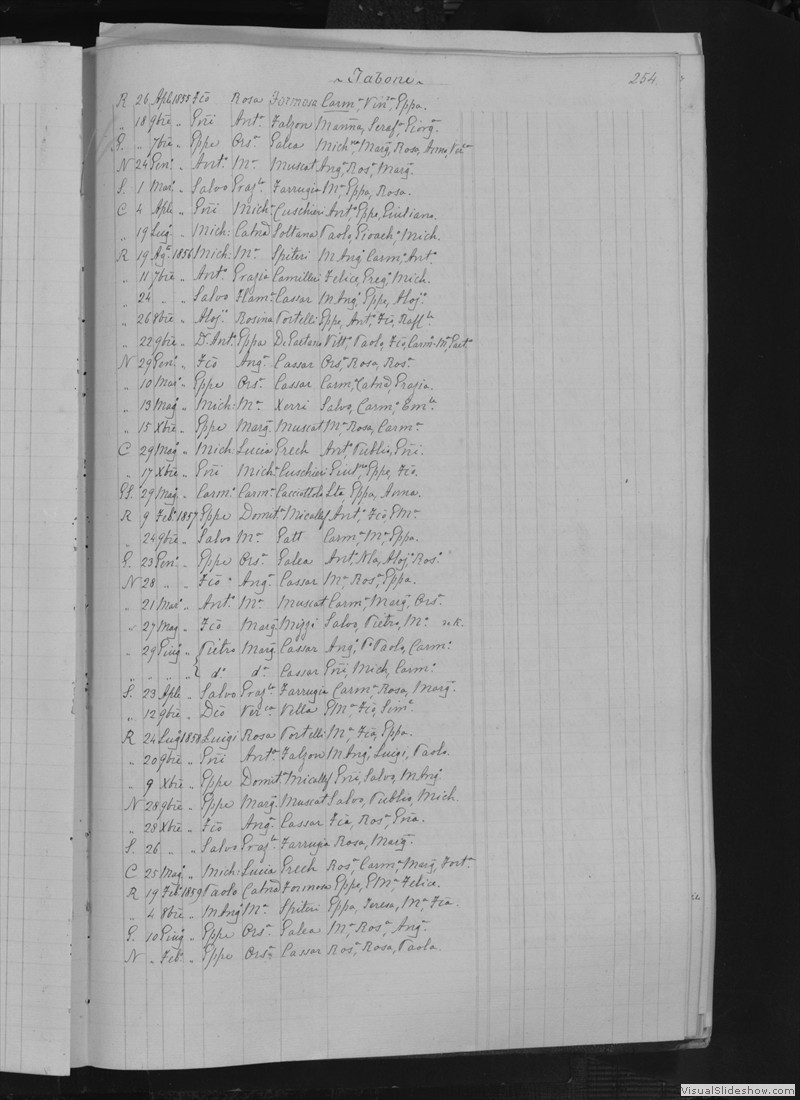 ~ Tabone ~ 254.
R 26 Aple 1855 Fco Rosa Formosa Carma, Vinza, Eppa.
" 18 9bre " Eñri Anta Falzon Marina, Serafa, Giorga.
G. " 7bre " Eppe Orsa Galea Micha, Marg, Rosa, Anna,
N 24 Geno " Anto Ma Muscat Anga, Rosa, Marg.
S. 1 Maro " Salvo Grazla Farrugia Ma Eppa, Rosa.
C 4 Aple " Eñri Micha Cuschieri Anto, Eppe, Giuliana.
" 19 Lugo " Mich: Catna Soltana Paolo, Gioacho, Mich.
R 19 Ago 1856 Mich: Ma Spiteri M Ango, Carmo, Anto.
" 11 7bre " Anto Grazia Camilleri Felice, Grego, Mich.
" 24 " " Salvo Flama Cassar M Ango, Eppe, Alojo.
" 26 8bre " Alojo Rosina Portelli Eppe, Anto, Fco, Raffle.
" 22 9bre " Dr. Anto Eppa Di Gaetano Vitto, Paolo, Fco, Carmo,
N 29 Geno " Fco Anga Cassar Orsa, Rosa, Rosa.
" 10 Maro " Eppe Orsa Cassar Carma, Catna, Grazia.
" 13 Mago " Mich: Ma Xerri Salvo, Carmo, Emle.
" 15 Xbre " Eppe Marg. Muscat Ma, Rosa, Carma.
C 29 Mago " Mich: Lucia Grech Anto, Publio, Eñri.
" 17 Xbre " Eñri Micha Cuschieri Giuse, Eppe, Fco.
GS. 29 Mago " Carmo Carma Cacciottolo Lta, Eppa, Anna.
R 9 Febo 1857 Eppe Domita Micallef Anto, Fco, EMa.
" 24 9bre " Salvo Ma Gatt Carma, Ma, Eppa.
G. 23 Geno " Eppe Orsa Galea Anto, Nla, Alojo, Roso.
N 28 " " Fco Anga Cassar Ma, Rosa, Eppa.
" 21 Maro " Anto Ma Muscat Carma, Marg, Orsa.
" 27 Mago " Fco Marg. Mizzi Salvo, Pietro, Ma. n.k.
" 29 Giugo " Pietro Marg. Cassar Ango, P. Paolo, Carmo.
" " " " { do do Cassar Eñri, Mich, Carmo.
S. 23 Aple " Salvo Grazla Farrugia Carma, Rosa, Marg.
" 12 9bre " Dco Verca Vella GMa, Fco, Sime.
R 24 Lugo 1858 Luigi Rosa Portelli Ma, Fca, Eppa.
" 20 9bre " Eñri Anta Falzon M Ango, Luigi, Paolo.
" 9 Xbre " Eppe Domita Micallef Eñri, Salvo, M Ango.
N 28 9bre " Eppe Marg. Muscat Salvo, Publio, Mich.
" 28 Xbre " Fco Anga Cassar Fca, Rosa, Eña.
S. 26 " " Salvo Grazla Farrugia Rosa, Marg.
C 25 Mago " Mich: Lucia Grech Rosa, Carma, Marg, Forta.
R 19 Febo 1859 Paolo Catna Formosa Eppe, GMa, Felice.
" 4 8bre " M Ango Ma Spiteri Eppa, Teresa, Ma, Fca.
G. 10 Giugo " Eppe Orsa Galea Ma, Rosa, Anga.
N " Febo " Eppe Orsa Cassar Rosa, Rosa, Paola.
VisualSlideshow.com